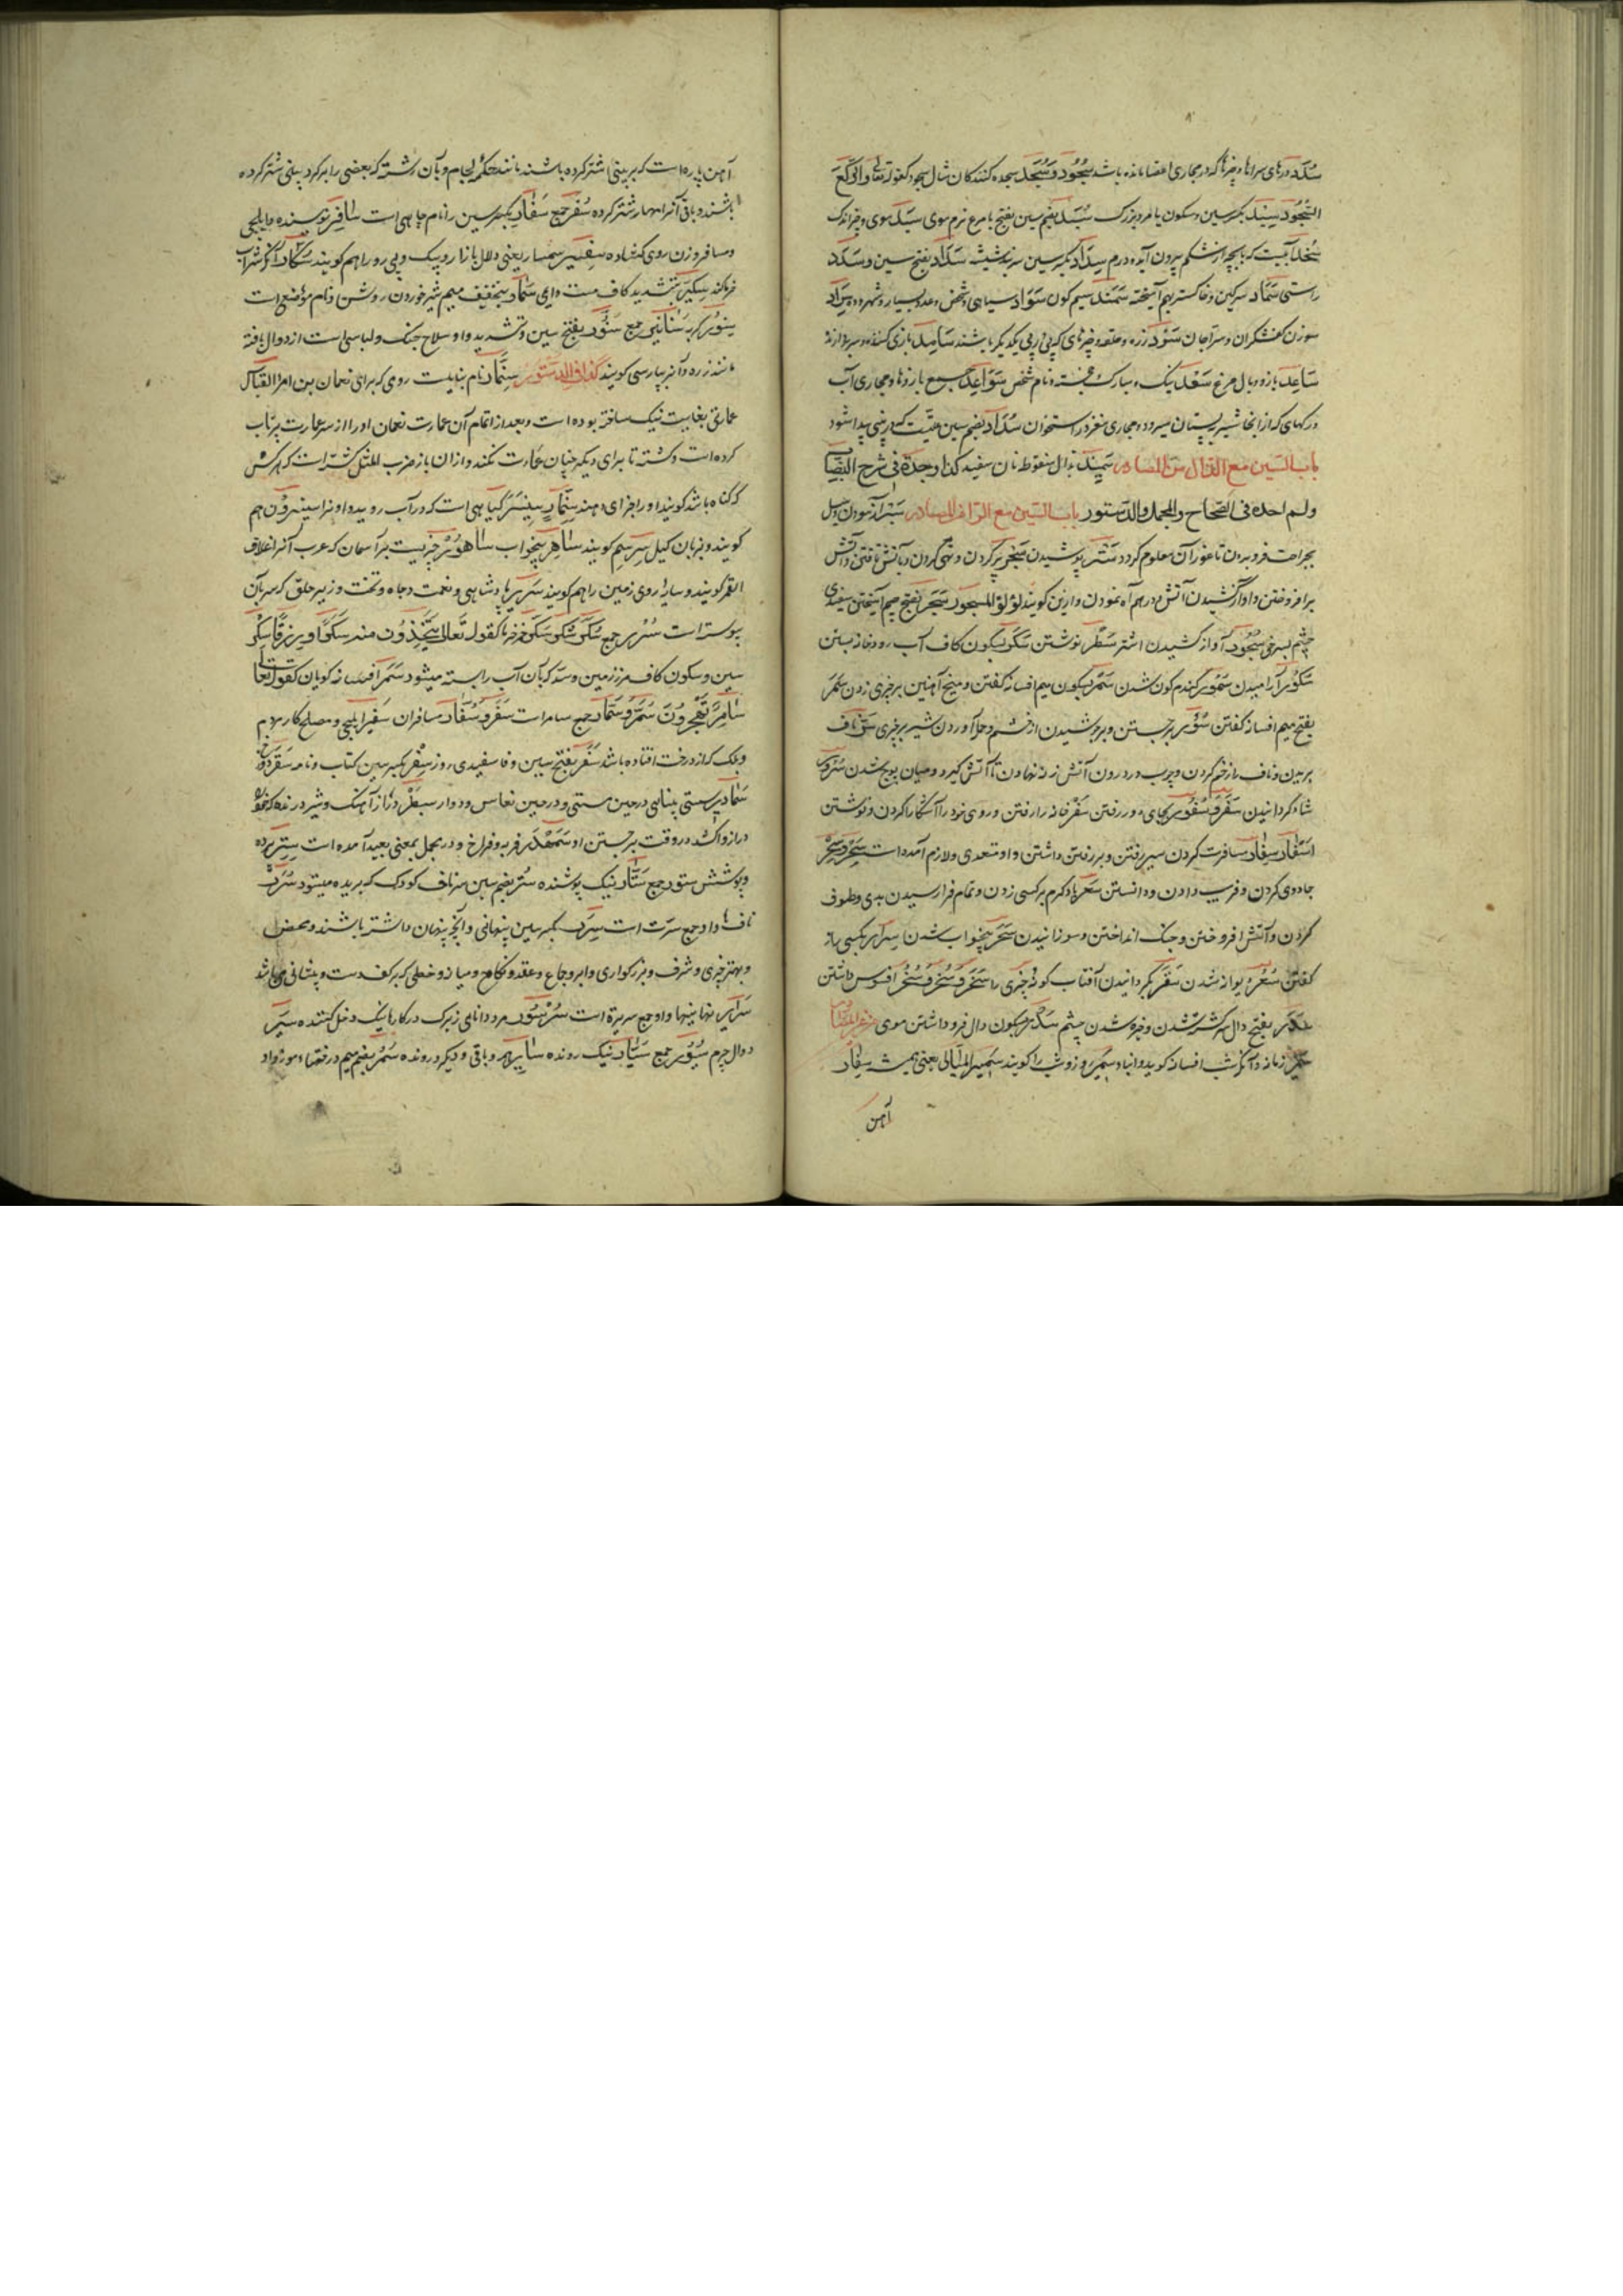 سُدَد درهای سراها و چیزها که در مجاری اعضا مانده باشد سُجُود و سُجَّد سجده کنندگان مثال سجود کقوله تعالی والرکع
السُّجُود سِبْد بکسر سین و سکون با مرد بزرگ سُبَد بضم سین بفتح با مرغ نرم موی سَبَد موی و چیز اندک
سُخْد آبیست که با بچه از شکم بیرون آید و درم سِدَاد بکسر سین سربند شیشه سَدَاد بفتح سین و سَدَد
راستی سَمَاد سرکین و خاکستر بهم آمیخته سَمَنْد سیم کون سَوَاد سیاهی و شخص و عدد بسیار و شهر و ده سِرَاد
سوزن کفشگران و سراجان سَرْد زره و حلقه و چیزهای که پی از پی یکدیگر باشند سَامِد بازی کننده و سر بردارنده
سَاعِد بازو و بال مرغ سَعْد نیک و مبارک و خجسته و نام شخص سَوَاعِد جمع بازوها و مجاری آب
و رکهای که از آنجا شیر بپستان میرود و مجاری مغز در استخوان سُدَاد بضم سین علتیست که در بینی پیدا شود
باب السّین مع الذال من المصادر سَمِیذ بذال منقوطه نان سفید کذا وجدة فی شرح النصاب
ولم احده فی الصّحاح والمجمل والدستور باب السّین مع الرّا من المصادر سَبْر آزمودن و میل
بجراحت فرو بردن تا غور آن معلوم کردد سَتْر پوشیدن سَجْر پر کردن و تهی کردن و بآتش تافتن و آتش
برافروختن و آواز کشیدن آتش و در هم آه نمودن و از این کویند لؤلؤ المسجور سَجَر بفتح جیم آمیختن سفیدی
چشم بسرخی سُجُور آواز کشیدن اشتر سَطْر نوشتن سَکْر بسکون کاف آب رودخانه بستن
سُکُور آرامیدن سُمُور کندم کون شدن سَمْر بسکون میم افسانه کفتن و میخ آهنین بر چیزی زدن سَمَر
بفتح میم افسانه کفتن سُؤْر برجستن و بر جوشیدن از خشم و حمله آوردن شیر بر چیزی سَرّ ناف
بریدن و ناف را زخم کردن و چوب در درون آتش زنه نهادن تا آتش کیرد و میان پوچ شدن سُرُور
شاد کردانیدن سَفَر و سُفُور بجای دور رفتن سَفْر خانه را رفتن و روی خود را آشکارا کردن و نوشتن
اَسْفَار سِفَار مسافرت کردن سیر رفتن و بر رفتن داشتن و او متعدی و لازم آمده است سِحْر و سَحْر
جادوی کردن و فریب دادن و دانستن سَعْر باد کرم بر کسی زدن و تمام فرا رسیدن بدی و طوف
کردن و آتش افروختن و جنک انداختن و سوزانیدن سَهَر بیخواب شدن سِرَار بکسی راز
کفتن سُعُر دیوانه شدن سَقْر بگردانیدن آفتاب کونه چیزی را سَخَر و سُخْر و سُخُر افسوس داشتن
سَدَر بفتح دال سرکشته شدن و خیره شدن چشم سَدْر بسکون دال فرو داشتن موی من غیر المصادر
سَمَر زمانه و آنکه شب افسانه کوید و ابناء سَمِیر روز و شب را کویند سَمِیر اللیالی یعنی همیشه سِفَار
آهن
آهن پاره است که بر بینی اشتر کرده باشند مانند حکمهٔ لجام و آن رشته که بعضی را بر کرد بینی شتر کرده
باشند و باقی آنرا مهار شتر کرده سُفُر جمع سَفَار بکسر سین را نام چاهی است سَافِر نویسنده و ایلچی
و مسافر و زن روی کشاده سِفْسِیر سمسار یعنی دلال بازار و پیک و پی رو را هم کویند سَکَّار آنکه شراب
فروشد سِکِّیر بتشدید کاف مست دایم سَمَار بتخفیف میم شیر خوردن روشن و نام موضع است
سِنَّور کربه سَنَانیر جمع سَنَوَّر بفتح سین و تشدید واو سلاح جنک و لباسی است از دوال بافته
مانند زره و آنرا بپارسی کویند کذا فی الدستور سِنِمَّار نام بنائیست رومی که برای نعمان بن امرؤ القیس
عمارتی بغایت نیک ساخته بوده است و بعد از اتمام آن عمارت نعمان او را از سر عمارت پرتاب
کرده است و کشته تا برای دیکر چنان عمارت نکند و از آن باز ضرب المثل شده است که هر کس
که کناه باشد کویند او را جزای دهند سِنِمَّار سِیسَنْبَر کیاهی است که در آب روید و او را سینبرون هم
کویند و بزبان کیل سرسم کویند سَاهِر بیخواب سَاهُور چیزیست بر آسمان که عرب آنرا غلاف
القمر کویند و سایهٔ روی زمین را هم کویند سَرِیر پادشاهی و نعمت و جاه و تخت و زیر حلق که سر بآن
پیوسته است سُرُر جمع سُکَّر شکر سَکَر خرما کقوله تعالی تتّخذون منه سکرًا و رزقًا سِکْر
سین و سکون کاف مرز زمین و سد که بآن آب را بسته میشود سَمَر افسانه کویان کقوله تعالی
سَامِرًا تَهْجُرُونَ سُمَّر و سُمَّار جمع سامر است سَفْر و سُفَّار مسافران سَفِیر ایلچی و مصلح کار مردم
و برک که از درخت افتاده باشد سَفَر بفتح سین و فا سفیدی روز سِفْر بکسر سین کتاب و نامه سَقَر دوزخ
سَمَادِیر سستی بینائی در حین مستی و در حین نعاس و دوار سِبَطْر دراز آهنک و شیر درنده که خود را
دراز واکشد در وقت برجستن او سَمَهْدَر فربه و فراخ و در مجمل بمعنی بعید آمده است سِتْر پرده
و پوشش ستور جمع سَتَّار نیک پوشنده سُرّ بضم سین سر ناف کودک که بریده میشود سُرَر
نافها و او جمع سرّت است سِرّ بکسر سین پنهانی و آنچه پنهان داشته باشند و محض
و بهتر چیزی و شرف و بزرکواری و ابر و جماع و عقد و نکاح و میانه و خطی که بر کف دست و پیشانی می باشد
سَرَایِر نهانیها و او جمع سریرة است سُرْسُور مرد دانای زیرک در کارها نیک دخل کننده سَیْر
دوال چرم سُیُور جمع سَیَّار نیک رونده سَایِر همه و باقی و دیکر و رونده سَمُر بضم میم درختهاء موز و او